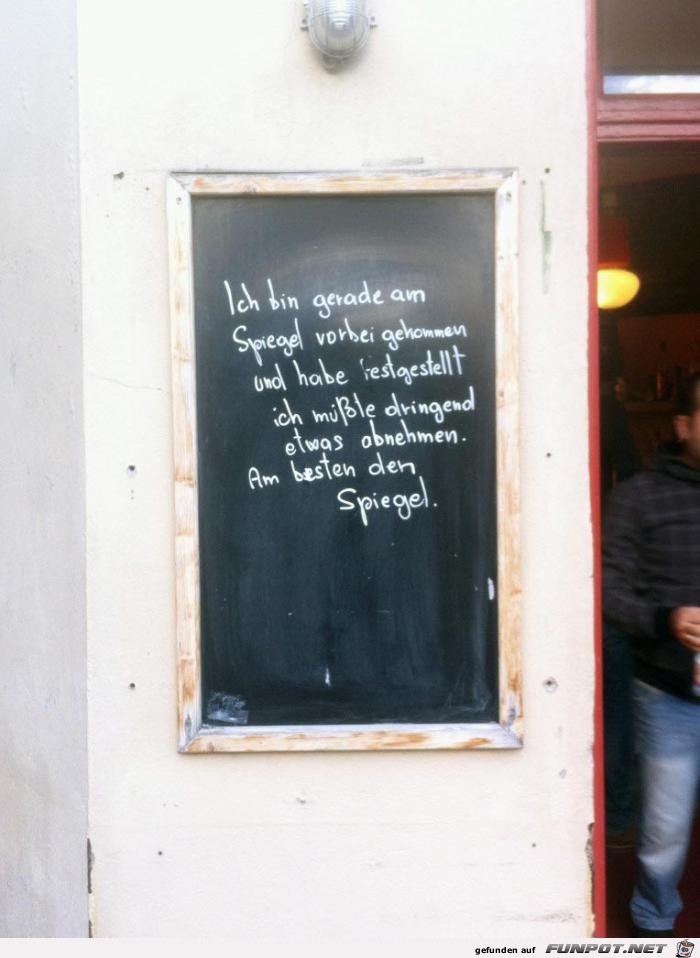 Ich bin gerade am
Spiegel vorbei gekommen
und habe festgestellt
ich müßte dringend
etwas abnehmen.
Am besten den
Spiegel.
gefunden auf FUNPOT.NET